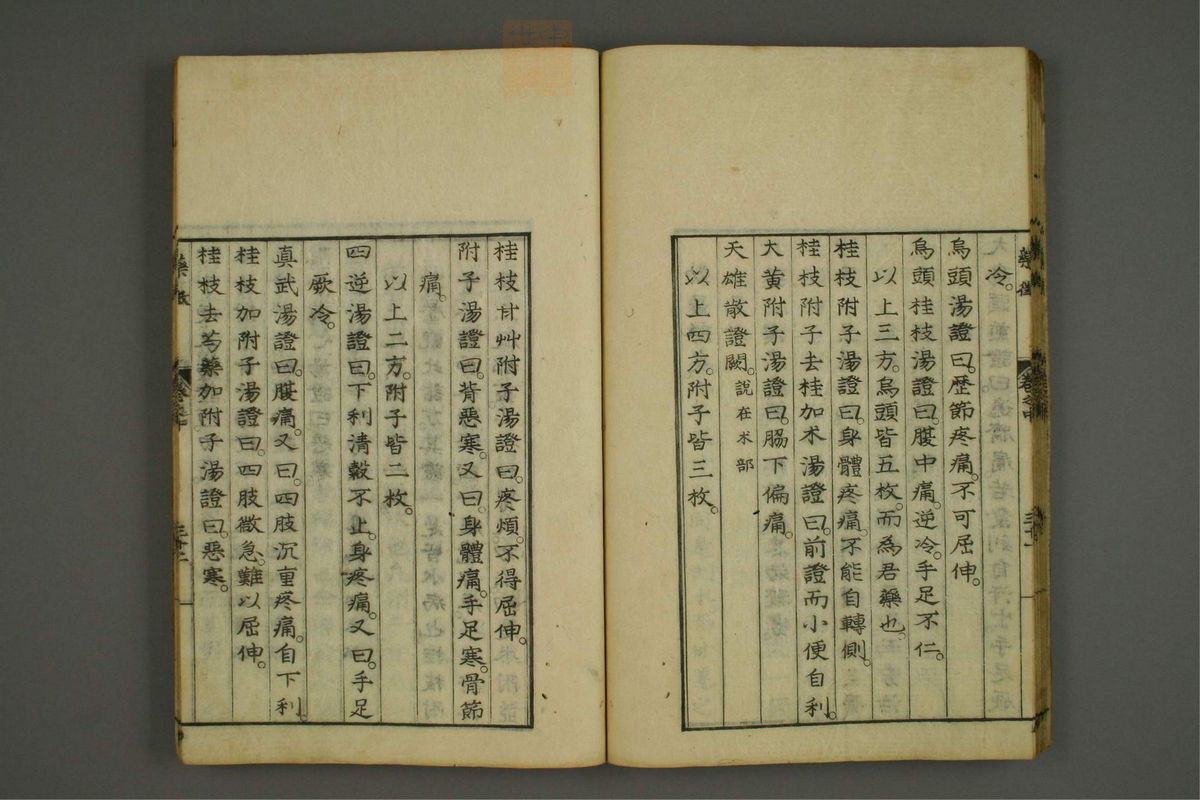 藥徵
卷之中
三十一
冷。
烏頭湯證曰。歷節疼痛。不可屈伸。
烏頭桂枝湯證曰。腹中痛。逆冷。手足不仁。
以上三方。烏頭皆五枚。而為君藥也。
桂枝附子湯證曰。身體疼痛。不能自轉側。
桂枝附子去桂加朮湯證曰。前證而小便自利。
大黃附子湯證曰。脇下偏痛。
天雄散證闕。說在朮部
以上四方。附子皆三枚。
桂枝甘艸附子湯證曰。疼煩。不得屈伸。
附子湯證曰。背惡寒。又曰。身體痛。手足寒。骨節
痛。
以上二方。附子皆二枚。
四逆湯證曰。下利清穀不止。身疼痛。又曰。手足
厥冷。
真武湯證曰。腹痛。又曰。四肢沉重疼痛。自下利。
桂枝加附子湯證曰。四肢微急。難以屈伸。
桂枝去芍藥加附子湯證曰。惡寒。
藥徵
卷之中
三十二